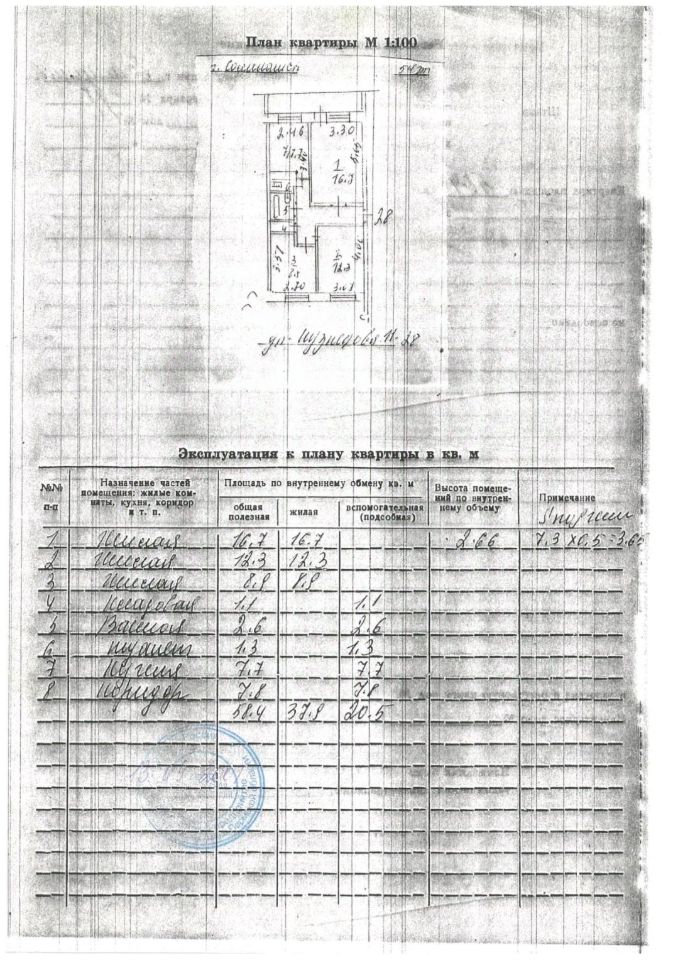 План квартиры М 1:100
г.
5 этаж
2.46 3.30
7/7.7
1
16.7
6
5
4
28
3.57
3
8.9
2
12.3
2.70 3.08
ул. 28
Эксплуатация к плану квартиры в кв. м
№№ п-п Назначение частей помещения: жилые комнаты, кухни, коридор и т. п. Площадь по внутреннему обмену кв. м Высота помещений по внутреннему объему Примечание
общая полезная жилая вспомогательная (подсобная)
1 Жилая 16.7 16.7 2.66 7.3 x 0.5 = 3.65
2 Жилая 12.3 12.3
3 Жилая 8.9 8.9
4 Кладовая 1.1 1.1
5 Ванная 2.6 2.6
6 туалет 1.3 1.3
7 Кухня 7.7 7.7
8 Коридор 7.8 7.8
58.4 37.9 20.5